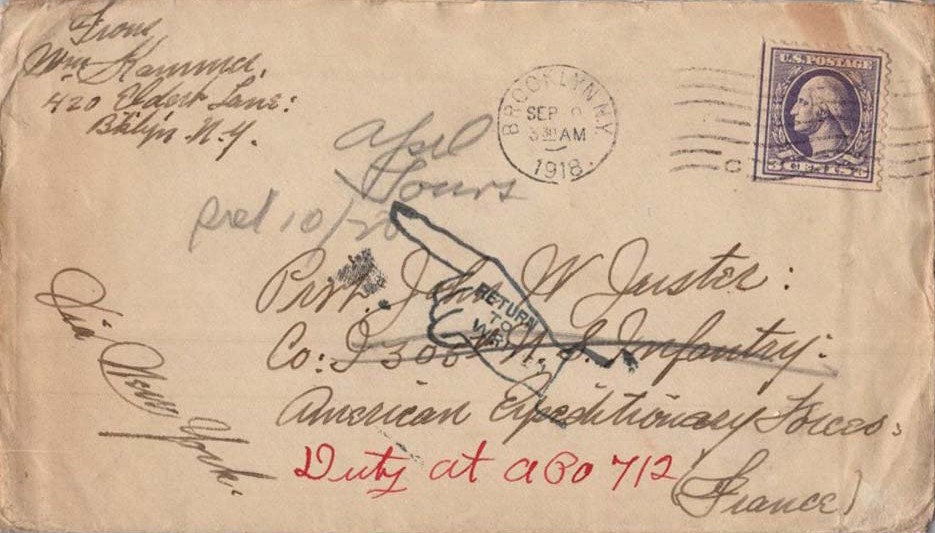 From
Wm Hammer,
420 Eldert Lane:
Bklyn. N.Y.
BROOKLYN NY
SEP 9
3 30 AM
1918
U.S. POSTAGE
3 CENTS 3
April
Tours
10/28
RETURN
TO
WRITER
Privt. John W Juster:
Co: I 306th U.S Infantry:
American Expeditionary Forces,
Duty at APO 712
(France)
Via New York.